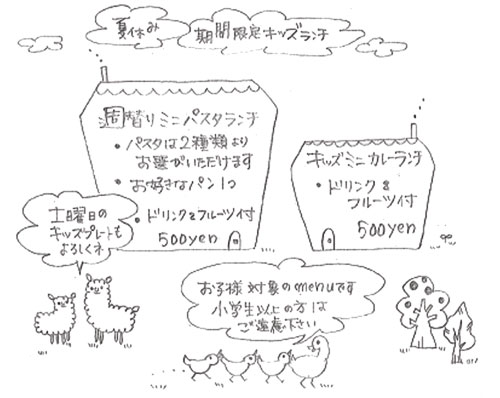 夏休み
期間限定キッズランチ
週替りミニパスタランチ
・パスタは2種類より
お選びいただけます
・お好きなパン1つ
・ドリンクとフルーツ付
500yen
キッズミニカレーランチ
・ドリンク&
フルーツ付
500yen
土曜日の
キッズプレートも
よろしくネ
お子様対象のmenuです
小学生以上の方は
ご遠慮下さい